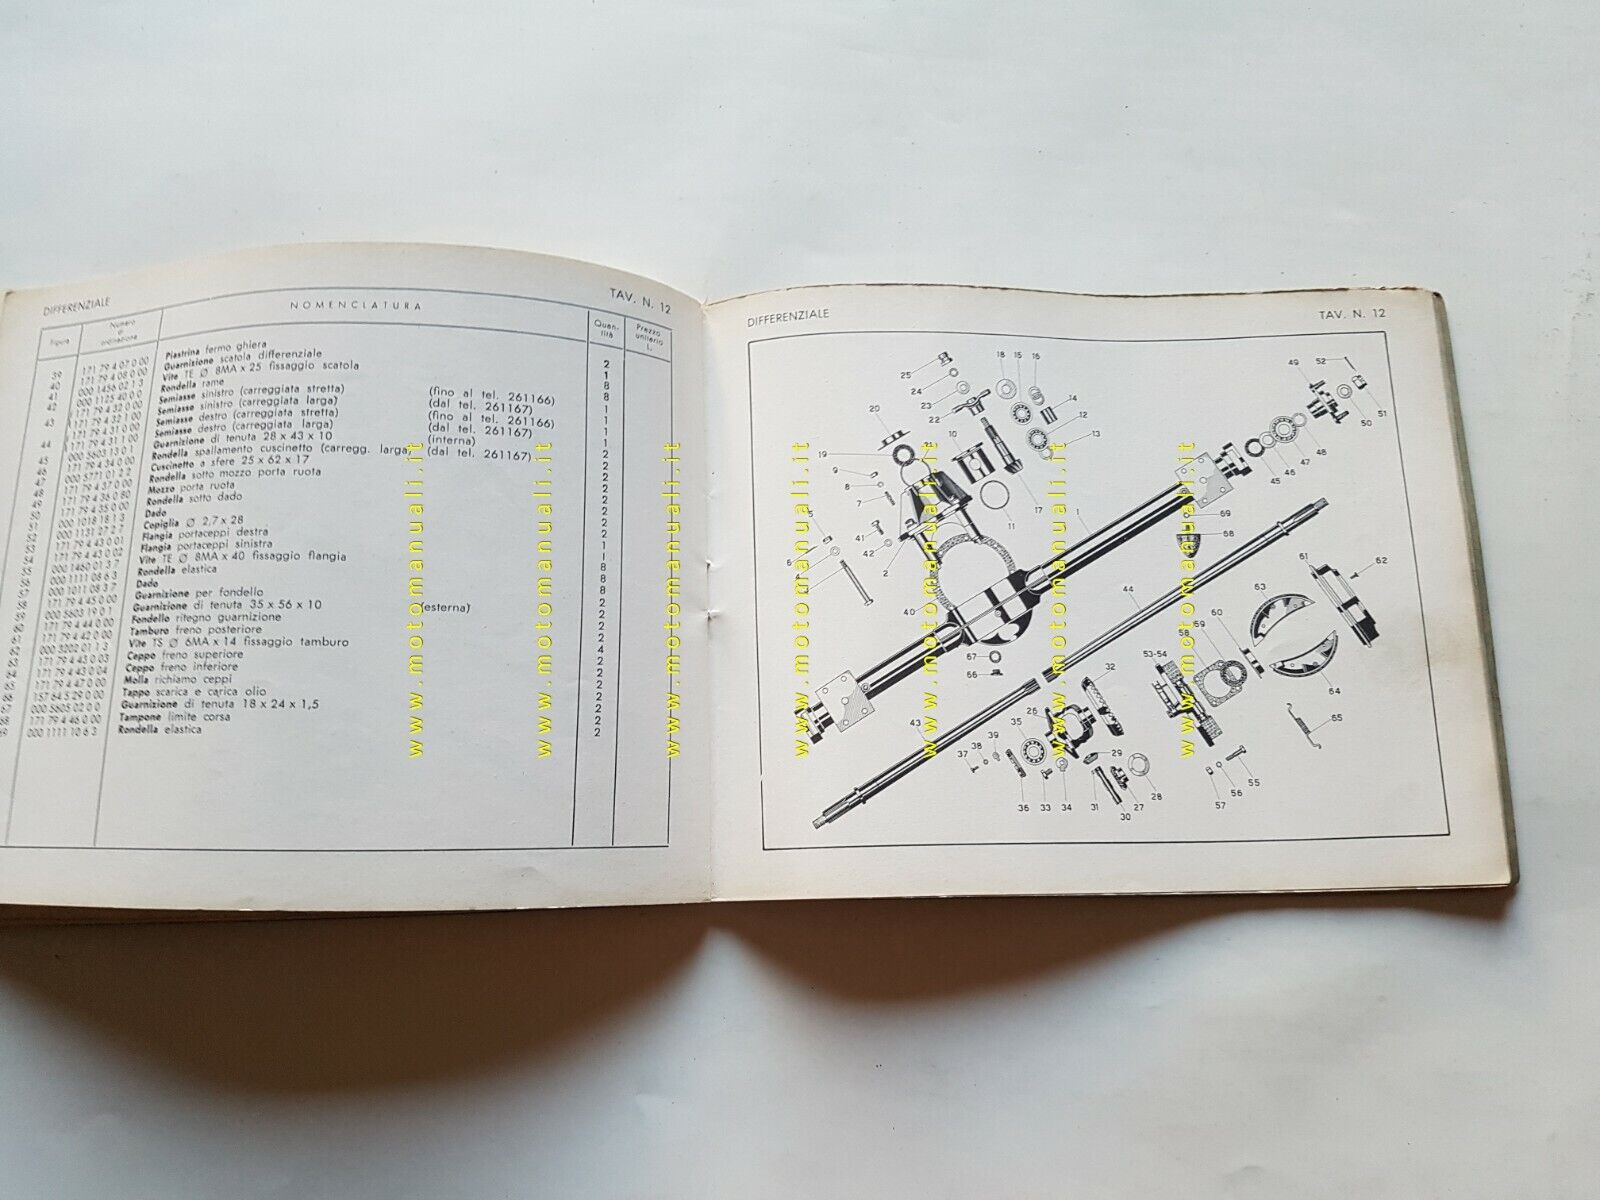 DIFFERENZIALE
TAV. N. 12
Figura
Numero di ordinazione
NOMENCLATURA
Quantità
Prezzo unitario L.
39 171 79 4 07 0 00 Piastrina fermo ghiera 2
40 171 79 4 08 0 00 Guarnizione scatola differenziale 1
41 000 1456 02 1 3 Vite TE Ø 8MA x 25 fissaggio scatola 8
42 000 1125 40 0 0 Rondella rame 8
43 171 79 4 32 0 00 Semiasse sinistro (carreggiata stretta) (fino al tel. 261166) 1
171 79 4 32 1 00 Semiasse sinistro (carreggiata larga) (dal tel. 261167) 1
44 171 79 4 31 0 00 Semiasse destro (carreggiata stretta) (fino al tel. 261166) 1
171 79 4 31 1 00 Semiasse destro (carreggiata larga) (dal tel. 261167) 1
45 000 5603 13 0 1 Guarnizione di tenuta 28 x 43 x 10 (interna) 2
46 171 79 4 34 0 00 Rondella spallamento cuscinetto (carregg. larga) (dal tel. 261167) 2
47 000 5771 01 2 2 Cuscinetto a sfere 25 x 62 x 17 2
48 171 79 4 37 0 00 Rondella sotto mozzo porta ruota 2
49 171 79 4 36 0 80 Mozzo porta ruota 2
50 171 79 4 35 0 00 Rondella sotto dado 2
51 000 1018 18 1 3 Dado 2
52 000 1131 27 2 7 Copiglia Ø 2,7 x 28 2
53 171 79 4 43 0 01 Flangia portaceppi destra 1
54 171 79 4 43 0 02 Flangia portaceppi sinistra 1
55 000 1460 01 3 7 Vite TE Ø 8MA x 40 fissaggio flangia 8
56 000 1111 08 6 3 Rondella elastica 8
57 000 1011 08 3 7 Dado 8
58 171 79 4 45 0 00 Guarnizione per fondello 2
59 000 5603 19 0 1 Guarnizione di tenuta 35 x 56 x 10 (esterna) 2
60 171 79 4 44 0 00 Fondello ritegno guarnizione 2
61 171 79 4 42 0 00 Tamburo freno posteriore 2
62 000 3202 01 1 3 Vite TS Ø 6MA x 14 fissaggio tamburo 4
63 171 79 4 43 0 03 Ceppo freno superiore 2
64 171 79 4 43 0 04 Ceppo freno inferiore 2
65 171 79 4 47 0 00 Molla richiamo ceppi 2
66 157 64 5 29 0 00 Tappo scarica e carica olio 2
67 000 5605 02 0 0 Guarnizione di tenuta 18 x 24 x 1,5 2
68 171 79 4 46 0 00 Tampone limite corsa 2
69 000 1111 10 6 3 Rondella elastica 2
DIFFERENZIALE
TAV. N. 12
25 18 15 16 49 52
24 23 22 14 12 13 51 50
20 10 21
19 9 8 7 11 17 1 45 46 47 48
5 41 42 2 69 68
6 40 44 61 62 63
67 66 32 53-54 58 59 60 64 65
43 35 26 39 38 37
36 33 34 31 29 30 27 28 57 56 55
www.motomanuali.it
www.motomanuali.it
www.motomanuali.it
www.motomanuali.it
www.motomanuali.it
www.motomanuali.it
www.motomanuali.it